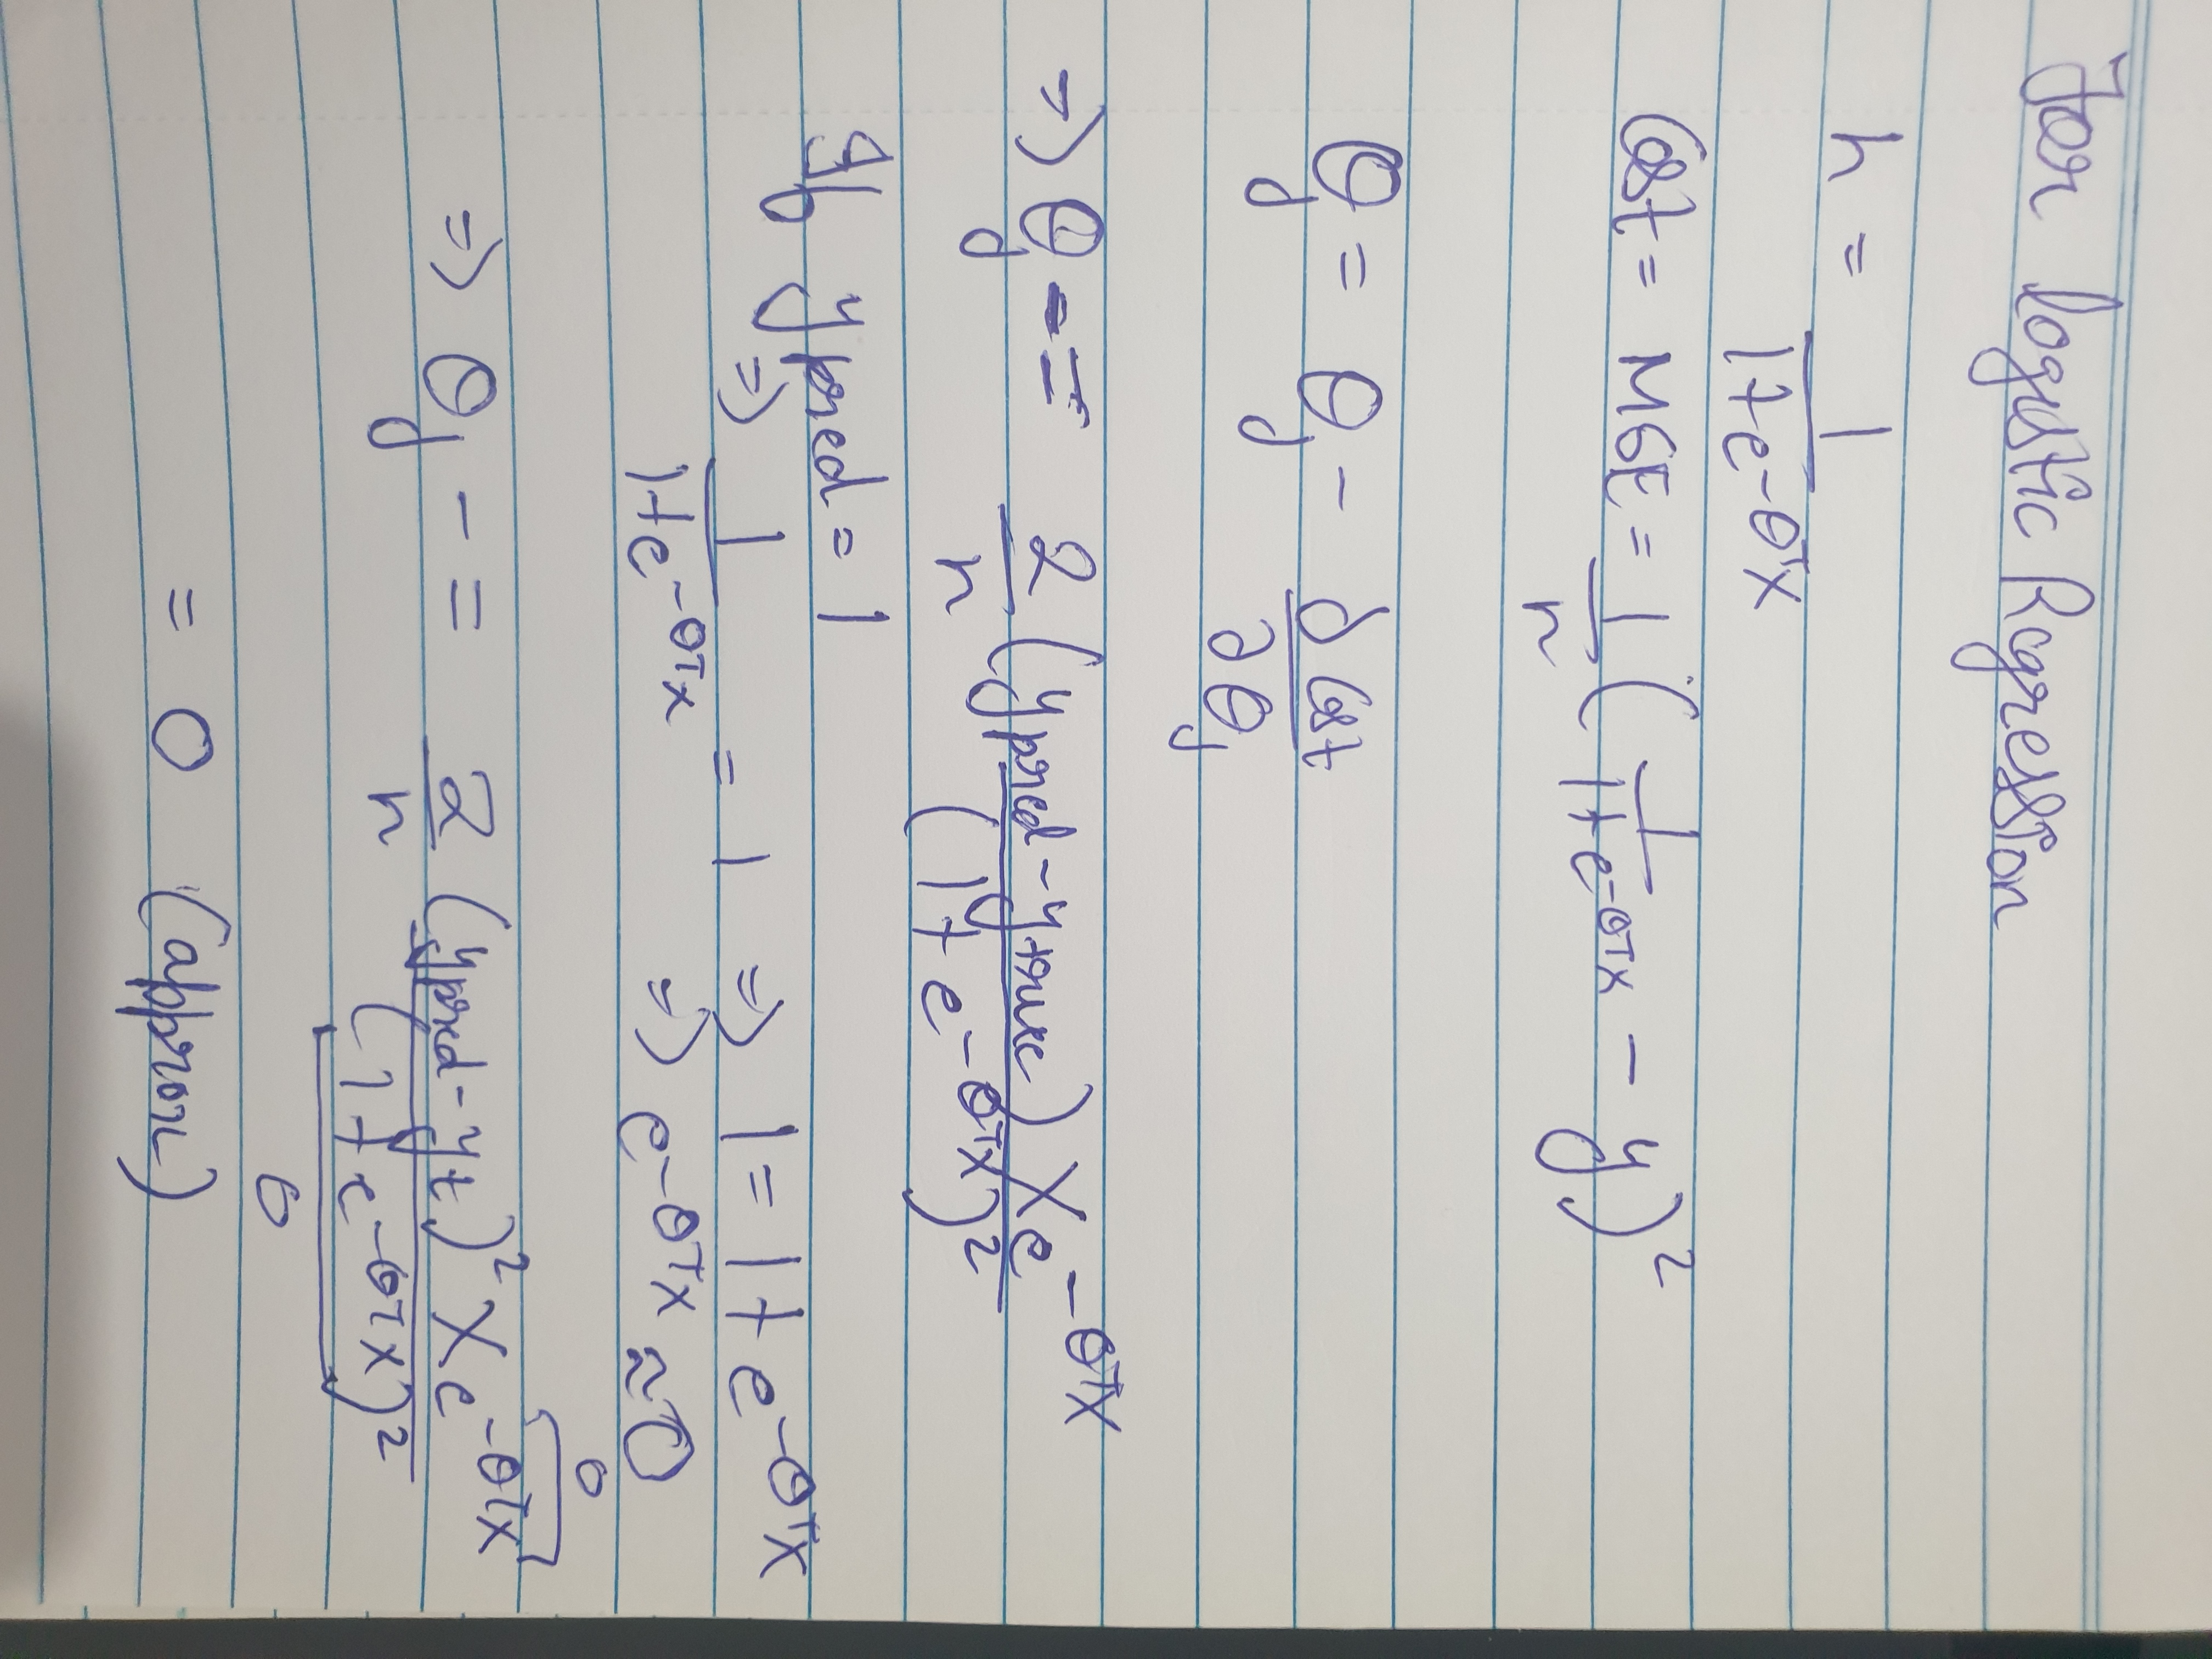 For Logistic Regression
h = 1 / 1+e^-θᵀx
Cost = MSE = 1/n ( 1 / 1+e^-θᵀx - y)²
θj = θj - ∂Cost / ∂θj
⇒ θj -= 2/n (ypred - ytrue) x e^-θᵀx / (1+e^-θᵀx)²
If ypred = 1
⇒ 1 / 1+e^-θᵀx = 1 ⇒ 1 = 1+e^-θᵀx
⇒ e^-θᵀx ≈ 0
⇒ θj -= 2/n (ypred - yt)² x e^-θᵀx / (1+e^-θᵀx)²
0
0
= 0 (approx)